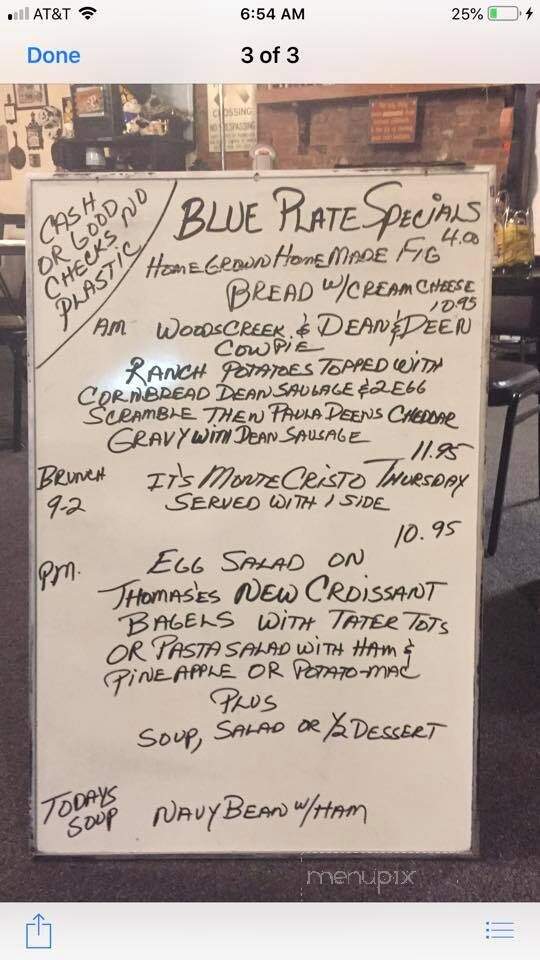 AT&T
6:54 AM
25%
Done
3 of 3
CROSSING
NO TRESPASSING
CASH
OR GOOD
CHECKS NO
PLASTIC
BLUE PLATE SPECIALS
4.00
HOMEGROWN HOMEMADE FIG
BREAD W/CREAM CHEESE
10.95
AM WOODSCREEK & DEAN & DEEN
COWPIE
RANCH POTATOES TOPPED WITH
CORNBREAD DEAN SAUSAGE & 2 EGG
SCRAMBLE THEN PAULA DEENS CHEDDAR
GRAVY WITH DEAN SAUSAGE
11.95
BRUNCH
9-2
IT'S MONTE CRISTO THURSDAY
SERVED WITH 1 SIDE
10.95
PM. EGG SALAD ON
THOMAS'ES NEW CROISSANT
BAGELS WITH TATER TOTS
OR PASTA SALAD WITH HAM &
PINEAPPLE OR POTATO-MAC
PLUS
SOUP, SALAD OR 1/2 DESSERT
TODAYS
SOUP
NAVY BEAN W/HAM
menupix